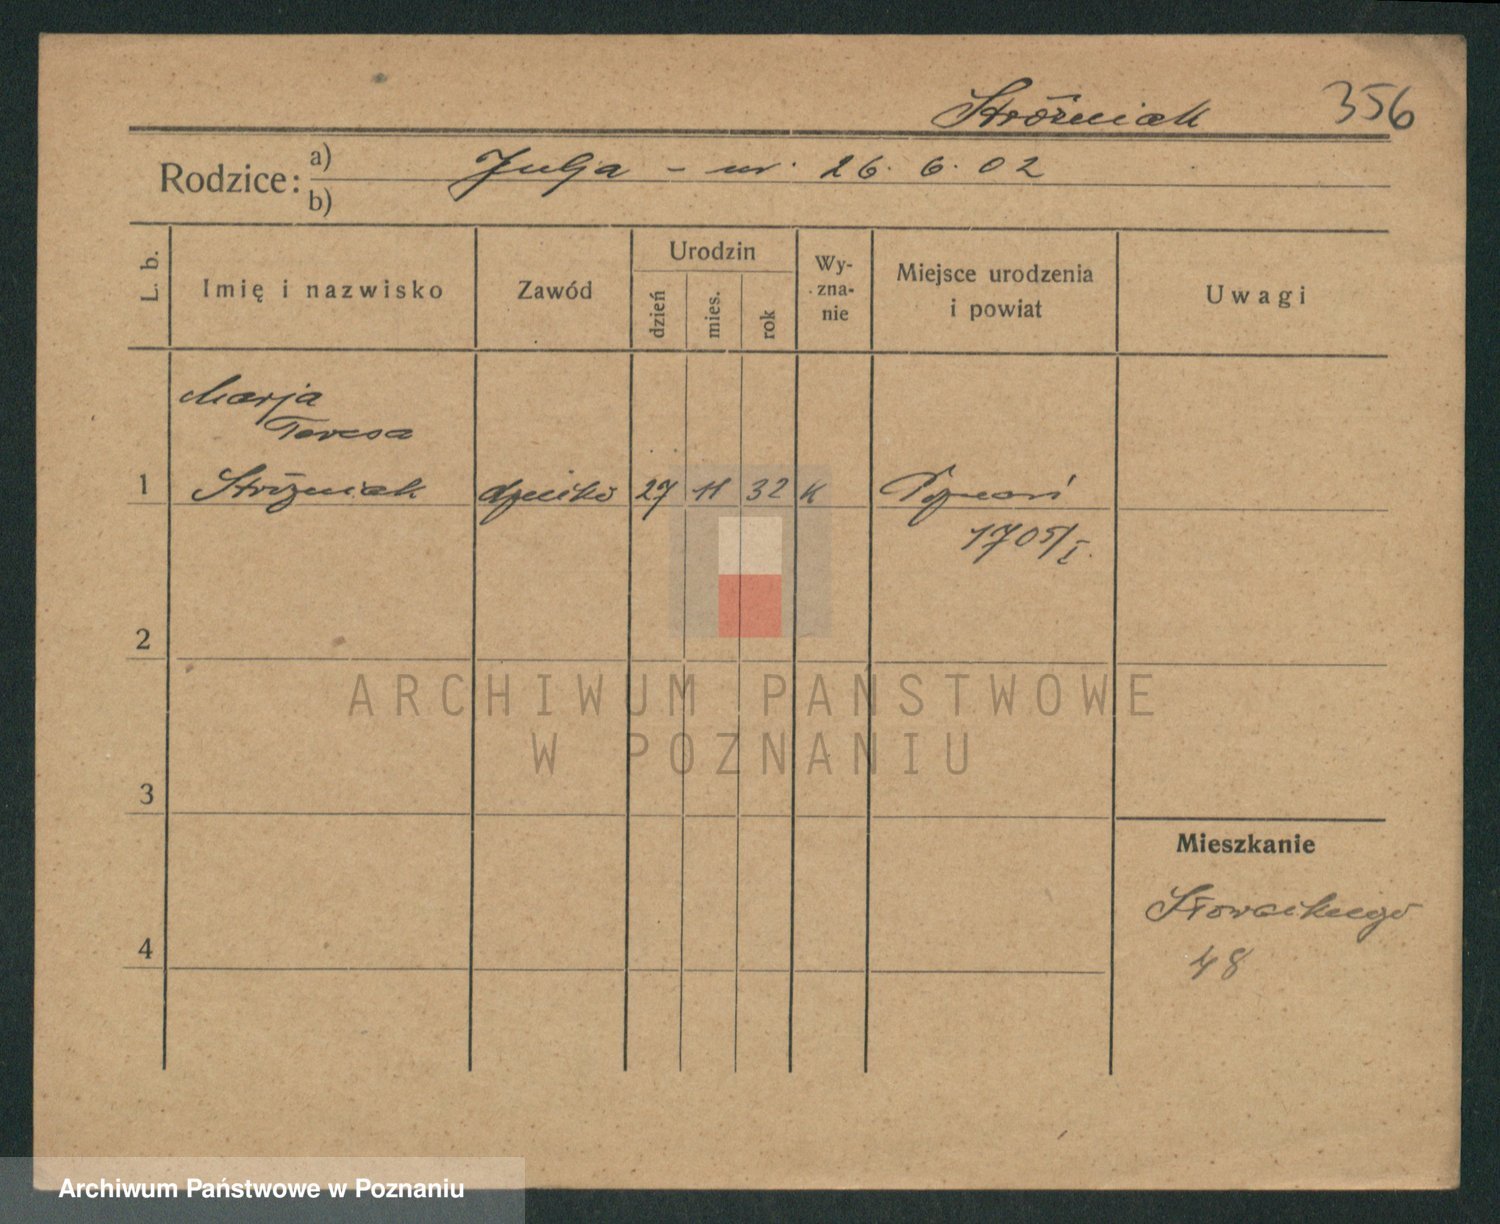 Stróżniak 356
Rodzice: a) Julja – ur. 26. 6. 02
b)
L. b. Imię i nazwisko Zawód Urodzin dzień mies. rok Wyznanie Miejsce urodzenia i powiat Uwagi
Marja
Teresa
1 Stróżniak dziecko 27 11 32 K Poznań
1705/I.
2
ARCHIWUM PAŃSTWOWE
W POZNANIU
3
Mieszkanie
Słowackiego
48
4
Archiwum Państwowe w Poznaniu